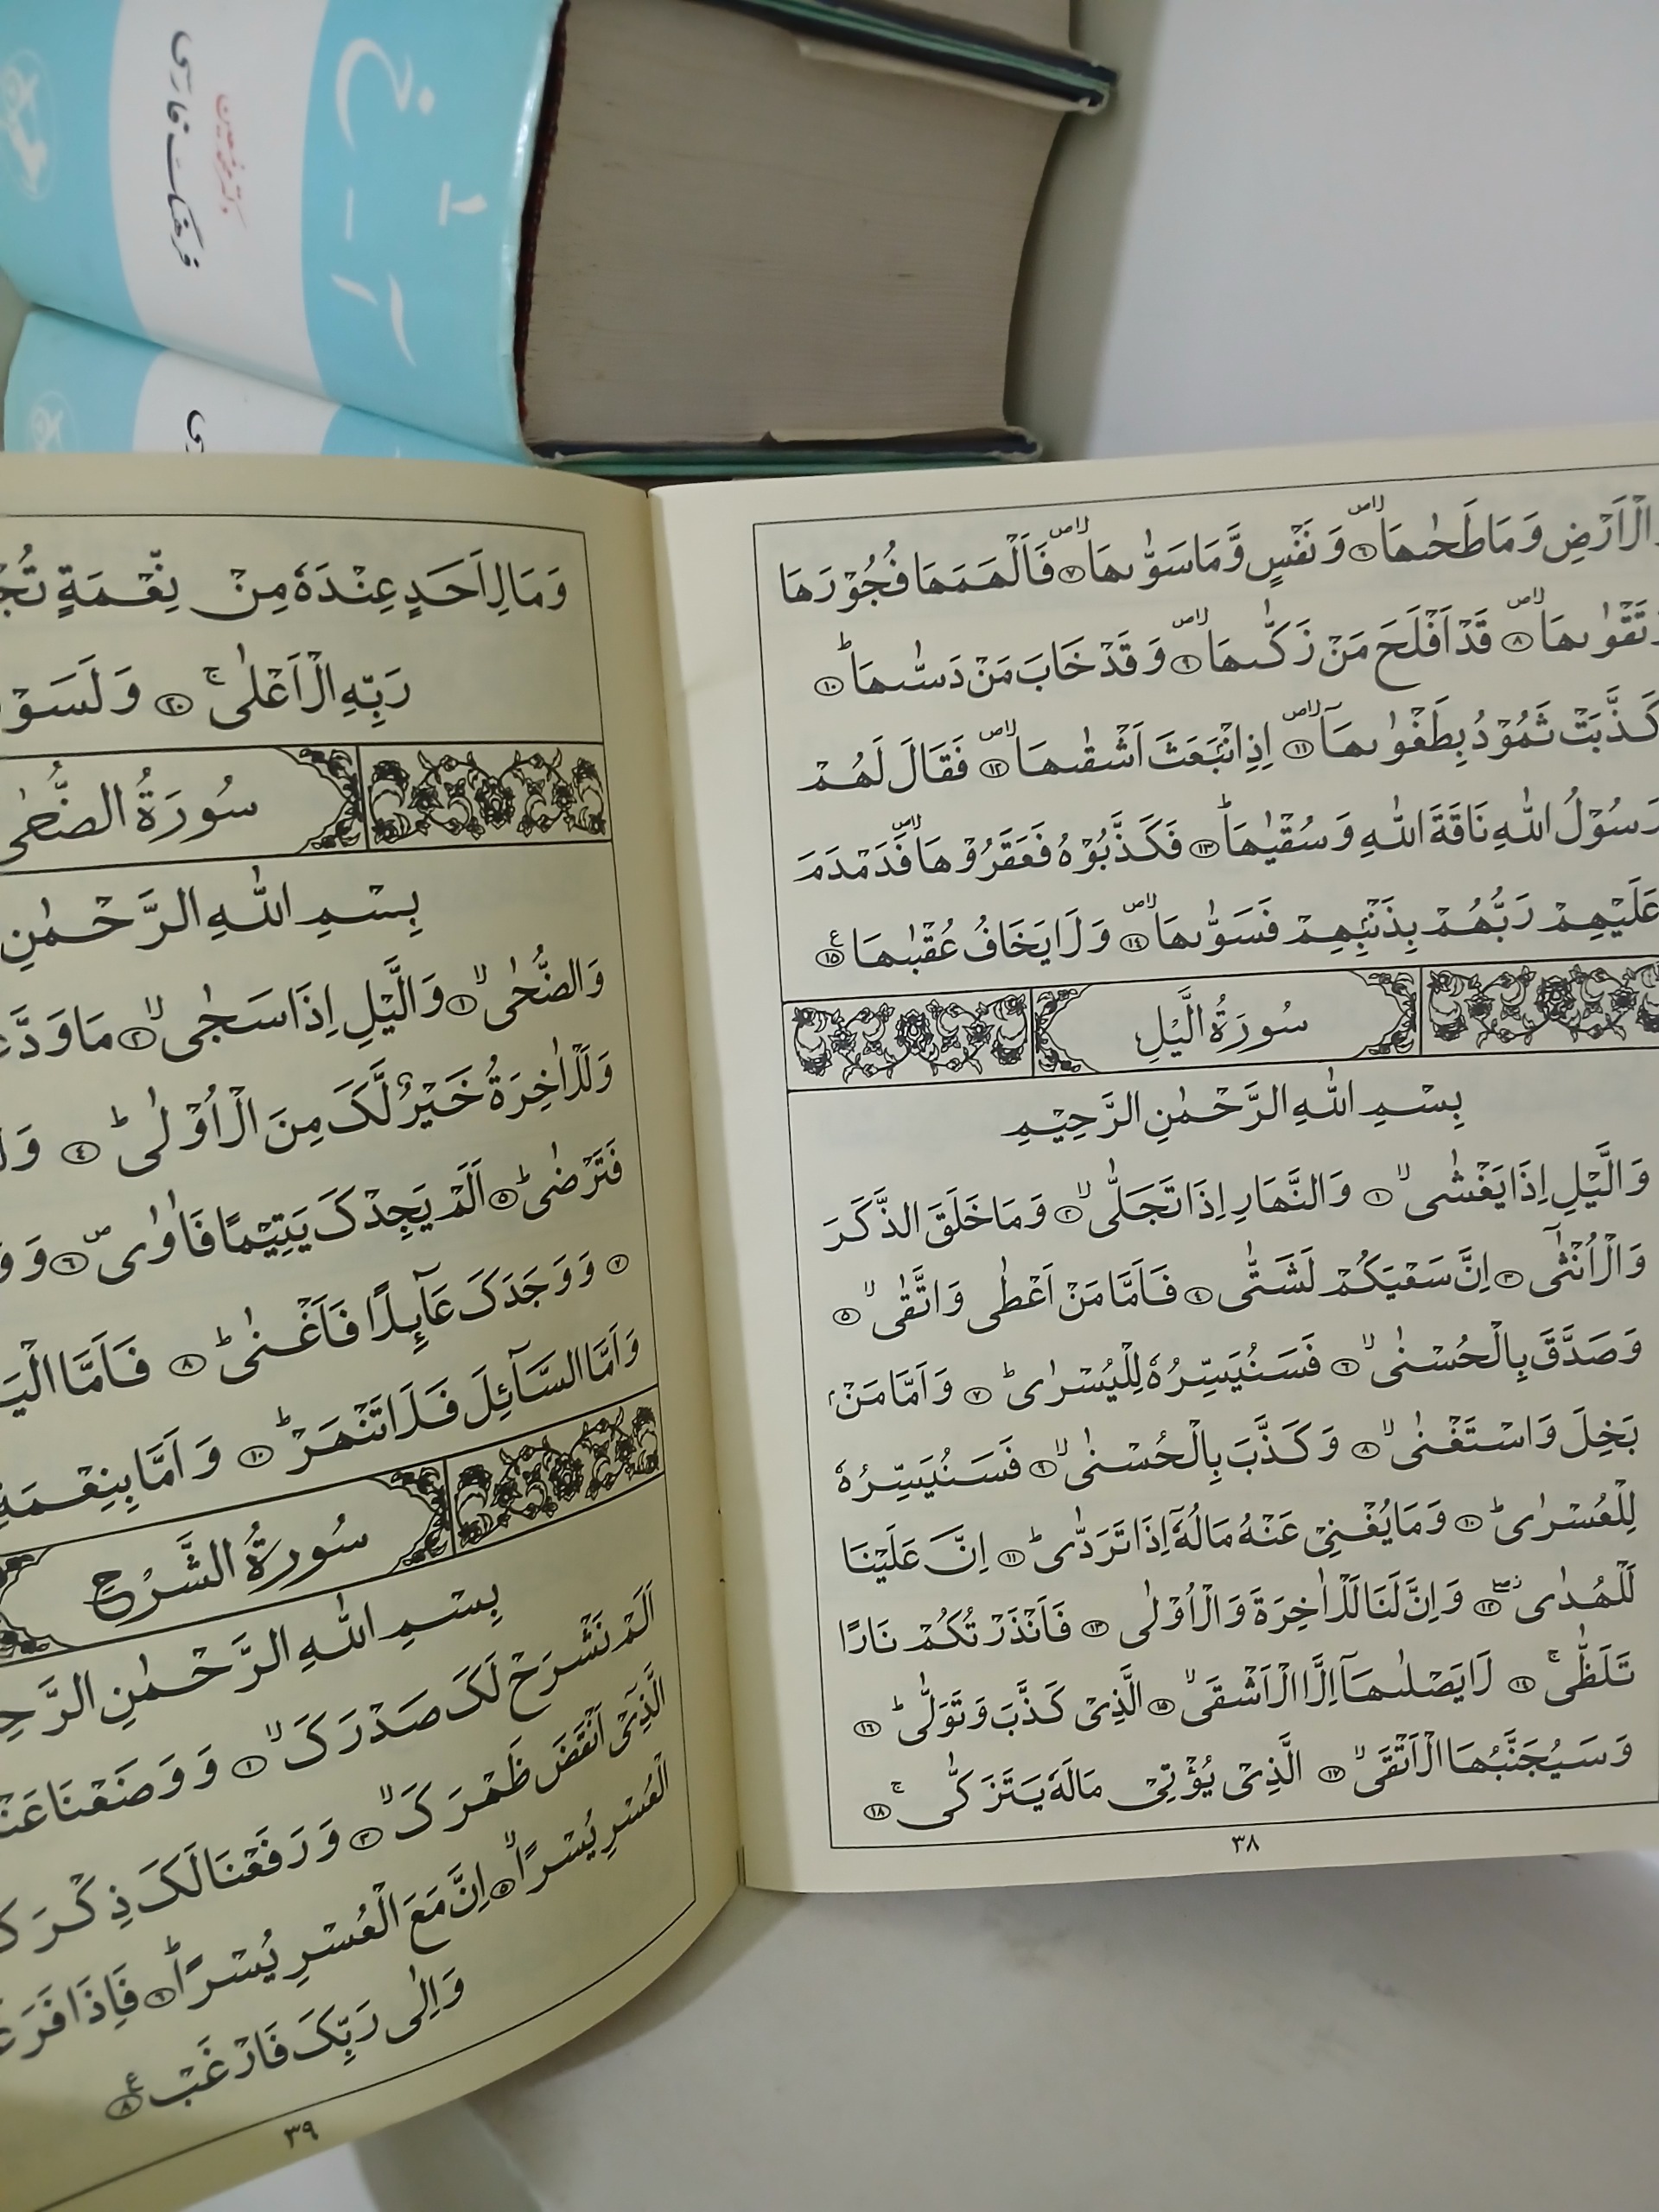 فرهنگ فارسی
دکتر محمد معین
۱
آ - خ
الْاَرْضِ وَمَا طَحٰىهَا ۶ وَنَفْسٍ وَّمَا سَوّٰىهَا ۷ فَاَلْهَمَهَا فُجُوْرَهَا
تَقْوٰىهَا ۸ قَدْ اَفْلَحَ مَنْ زَكّٰىهَا ۹ وَقَدْ خَابَ مَنْ دَسّٰىهَا ۱۰
كَذَّبَتْ ثَمُوْدُ بِطَغْوٰىهَآ ۱۱ اِذِ انْۢبَعَثَ اَشْقٰىهَا ۱۲ فَقَالَ لَهُمْ
رَسُوْلُ اللّٰهِ نَاقَةَ اللّٰهِ وَسُقْيٰهَا ۱۳ فَكَذَّبُوْهُ فَعَقَرُوْهَا فَدَمْدَمَ
عَلَيْهِمْ رَبُّهُمْ بِذَنْۢبِهِمْ فَسَوّٰىهَا ۱۴ وَلَا يَخَافُ عُقْبٰهَا ۱۵
سُورَةُ الَّيْلِ
بِسْمِ اللّٰهِ الرَّحْمٰنِ الرَّحِيْمِ
وَالَّيْلِ اِذَا يَغْشٰى ۱ وَالنَّهَارِ اِذَا تَجَلّٰى ۲ وَمَا خَلَقَ الذَّكَرَ
وَالْاُنْثٰٓى ۳ اِنَّ سَعْيَكُمْ لَشَتّٰى ۴ فَاَمَّا مَنْ اَعْطٰى وَاتَّقٰى ۵
وَصَدَّقَ بِالْحُسْنٰى ۶ فَسَنُيَسِّرُهٗ لِلْيُسْرٰى ۷ وَاَمَّا مَنْۢ
بَخِلَ وَاسْتَغْنٰى ۸ وَكَذَّبَ بِالْحُسْنٰى ۹ فَسَنُيَسِّرُهٗ
لِلْعُسْرٰى ۱۰ وَمَا يُغْنِيْ عَنْهُ مَالُهٗٓ اِذَا تَرَدّٰى ۱۱ اِنَّ عَلَيْنَا
لَلْهُدٰى ۱۲ وَاِنَّ لَنَا لَلْاٰخِرَةَ وَالْاُوْلٰى ۱۳ فَاَنْذَرْتُكُمْ نَارًا
تَلَظّٰى ۱۴ لَا يَصْلٰىهَآ اِلَّا الْاَشْقَى ۱۵ الَّذِىْ كَذَّبَ وَتَوَلّٰى ۱۶
وَسَيُجَنَّبُهَا الْاَتْقَى ۱۷ الَّذِىْ يُؤْتِىْ مَالَهٗ يَتَزَكّٰى ۱۸
۳۸
وَمَا لِاَحَدٍ عِنْدَهٗ مِنْ نِّعْمَةٍ
رَبِّهِ الْاَعْلٰى ۲۰ وَلَسَوْ
سُورَةُ الضُّحٰى
بِسْمِ اللّٰهِ الرَّحْمٰنِ
وَالضُّحٰى ۱ وَالَّيْلِ اِذَا سَجٰى ۲ مَا
وَلَلْاٰخِرَةُ خَيْرٌ لَّكَ مِنَ الْاُوْلٰى ۴
فَتَرْضٰى ۵ اَلَمْ يَجِدْكَ يَتِيْمًا فَاٰوٰى ۶
۷ وَوَجَدَكَ عَآئِلًا فَاَغْنٰى ۸ فَاَمَّا
وَاَمَّا السَّآئِلَ فَلَا تَنْهَرْ ۱۰ وَاَمَّا بِنِعْمَةِ
سُورَةُ الشَّرْحِ
بِسْمِ اللّٰهِ الرَّحْمٰنِ
اَلَمْ نَشْرَحْ لَكَ صَدْرَكَ ۱ وَوَضَعْنَا
الَّذِىْٓ اَنْقَضَ ظَهْرَكَ ۳ وَرَفَعْنَا لَكَ ذِكْرَكَ
الْعُسْرِ يُسْرًا ۵ اِنَّ مَعَ الْعُسْرِ يُسْرًا ۶ فَاِذَا
وَاِلٰى رَبِّكَ فَارْغَبْ ۸
۳۹